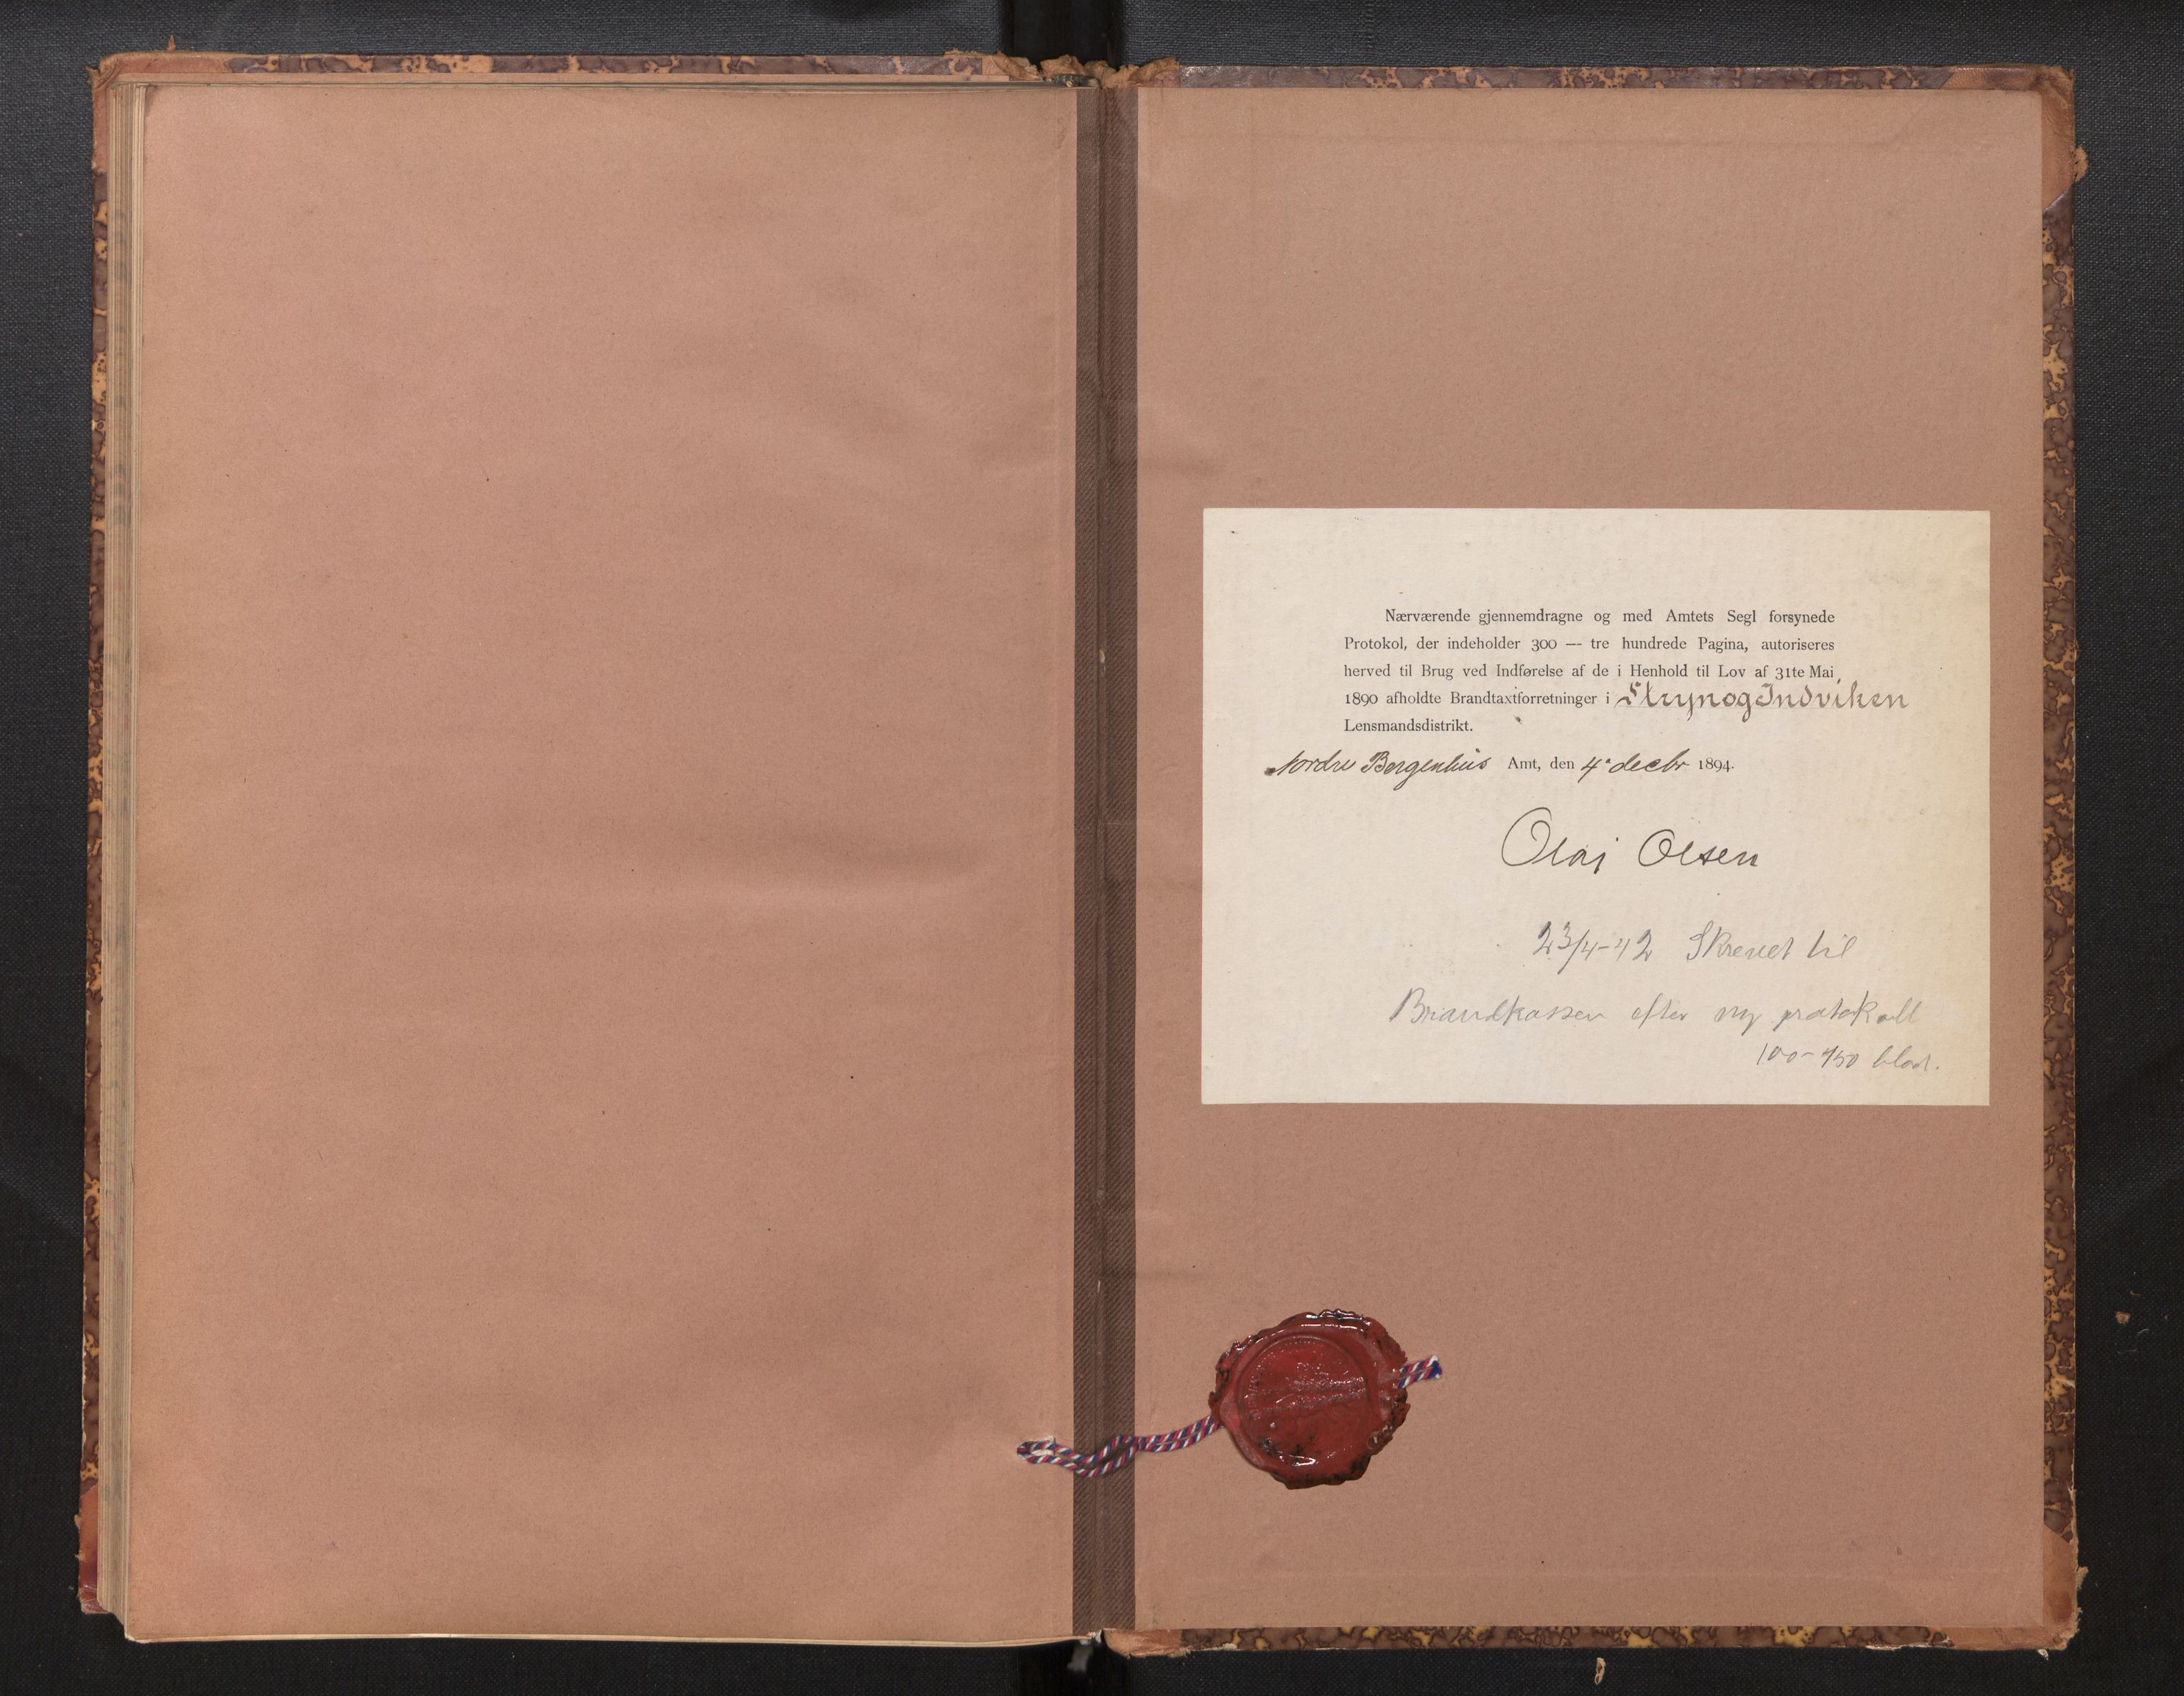 Nærværende gjennemdragne og med Amtets Segl forsynede
Protokol, der indeholder 300 — tre hundrede Pagina, autoriseres
herved til Brug ved Indførelse af de i Henhold til Lov af 31te Mai
1890 afholdte Brandtaxtforretninger i Stryn og Indviken
Lensmandsdistrikt.
Nordre Bergenhus Amt, den 4 decbr 1894.
Olaj Olsen
23/4-42 Skrevet til
Brandkassen efter ny protokoll
100-150 blad.